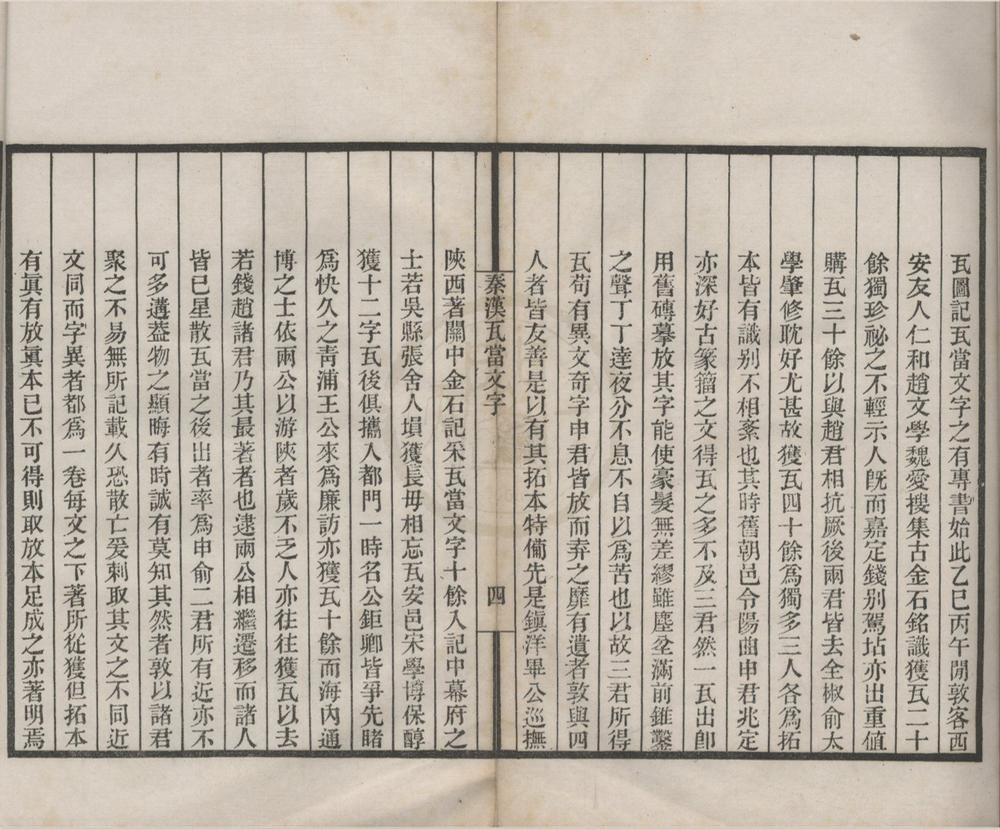 瓦圖記瓦當文字之有專書始此乙巳丙午閒敦客西
安友人仁和趙文學魏愛搜集古金石銘識獲瓦二十
餘獨珍祕之不輕示人旣而嘉定錢别駕坫亦出重値
購瓦三十餘以與趙君相抗厥後兩君皆去全椒俞太
學肇修耽好尤甚故獲瓦四十餘爲獨多三人各爲拓
本皆有識别不相紊也其時舊朝邑令陽曲申君兆定
亦深好古篆籀之文得瓦之多不及三君然一瓦出卽
用舊磚摹放其字能使豪髮無差繆雖塵坌滿前錐鑿
之聲丁丁達夜分不息不自以爲苦也以故三君所得
瓦苟有異文奇字申君皆放而弆之靡有遺者敦與四
人者皆友善是以有其拓本特僃先是鎭洋畢公巡撫
秦漢瓦當文字 四
陝西著關中金石記采瓦當文字十餘入記中幕府之
士若吳縣張舍人塤獲長毋相忘瓦安邑宋學博保醇
獲十二字瓦後俱攜入都門一時名公鉅卿皆爭先睹
爲快久之靑浦王公來爲廉訪亦獲瓦十餘而海內通
博之士依兩公以游陝者歲不乏人亦往往獲瓦以去
若錢趙諸君乃其最著者也逮兩公相繼遷移而諸人
皆已星散瓦當之後出者率爲申俞二君所有近亦不
可多遘葢物之顯晦有時誠有莫知其然者敦以諸君
聚之不易無所記載久恐散亡爰刺取其文之不同近
文同而字異者都爲一卷每文之下著所從獲但拓本
有眞有放眞本已不可得則取放本足成之亦著明焉